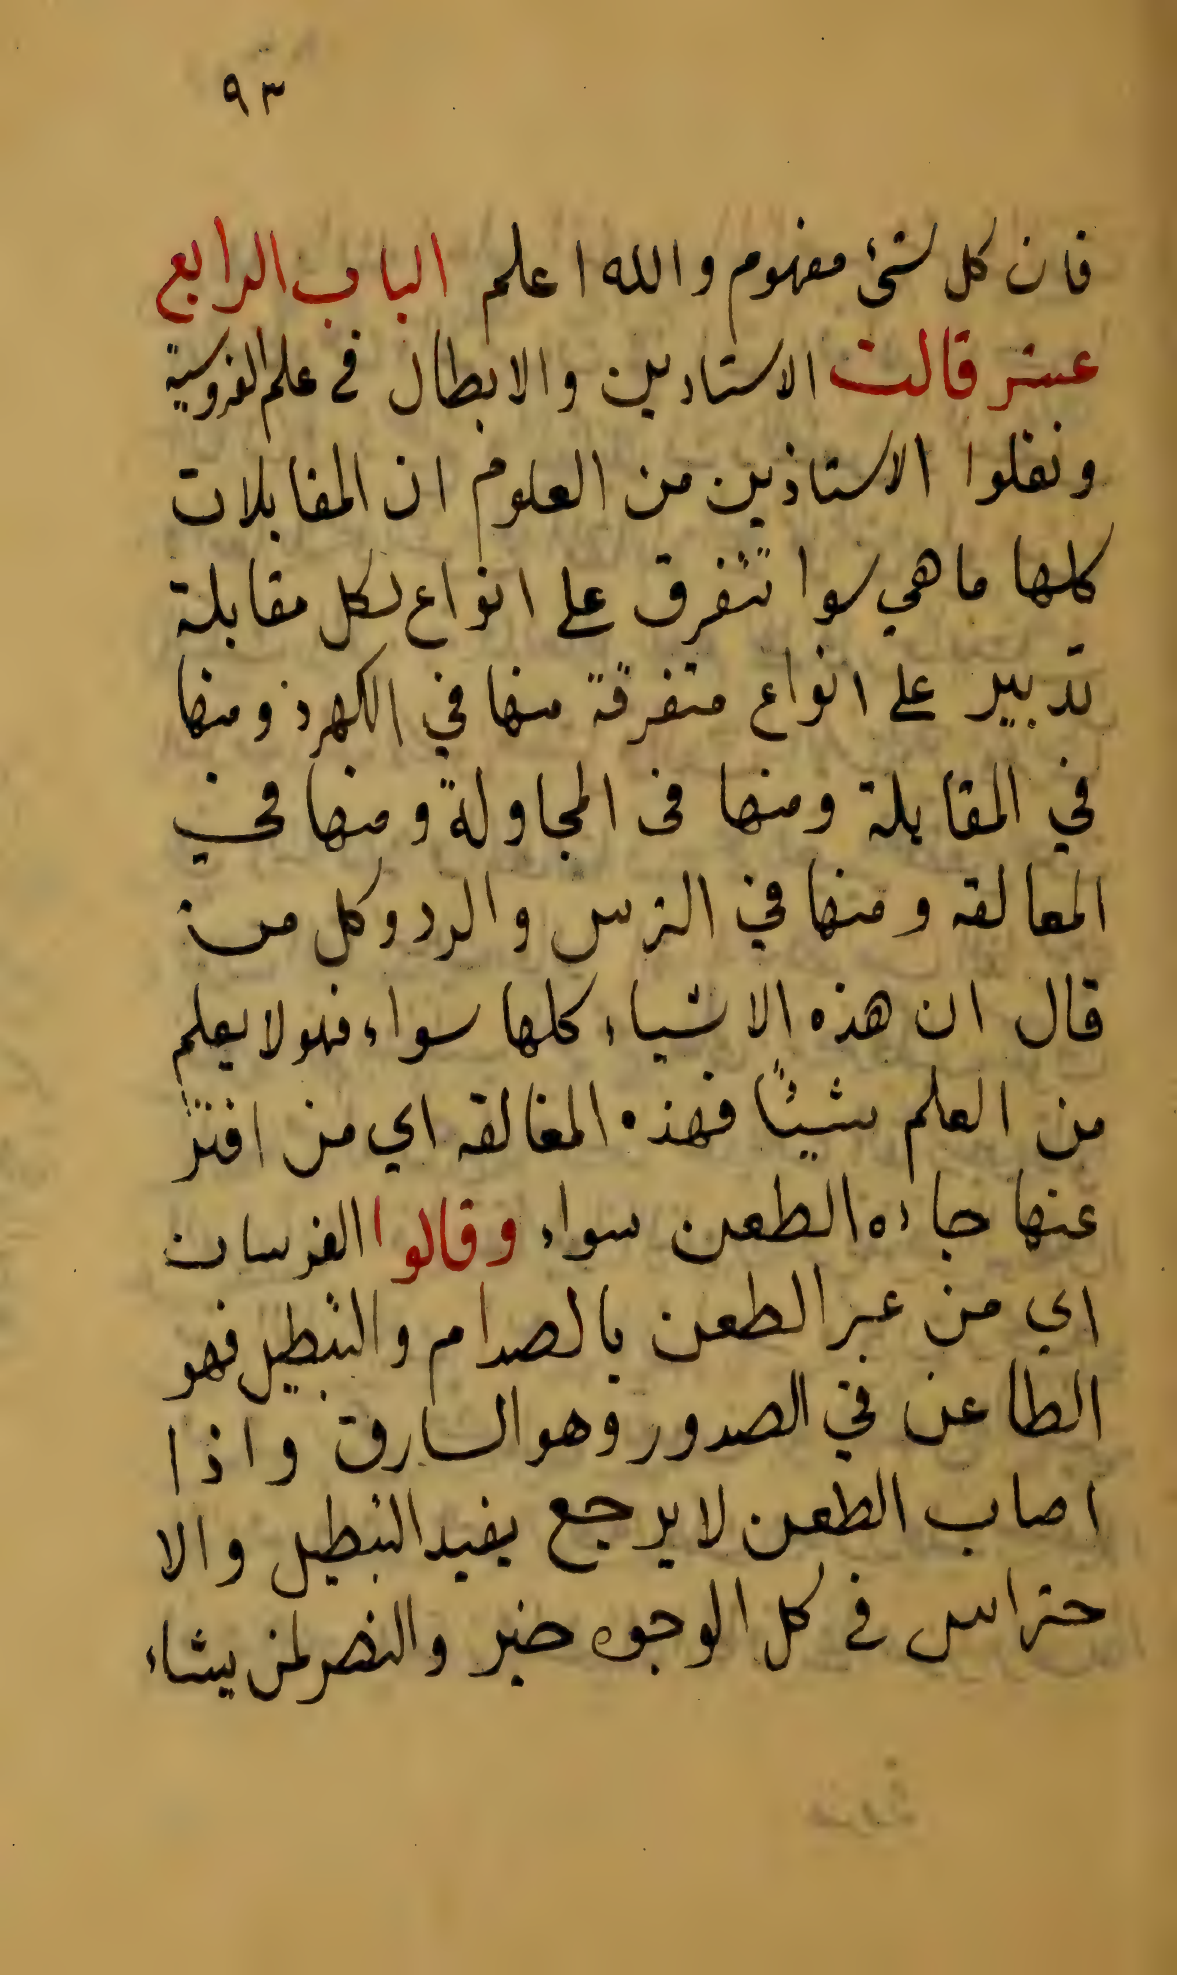 ٩٣
فان كل شئ مفهوم والله اعلم الباب الرابع
عشر قالت الاستادين والابطال في علم الفروسية
ونقلوا الاستاذين من العلوم ان المقابلات
كلها ما هي سوا تتفرق على انواع لكل مقابلة
تدبير على انواع متفرقة منها في الكهرد ومنها
في المقابلة ومنها فى المجاولة ومنها في
المعالقه ومنها في الترس والرد وكل من
قال ان هذه الاشياء كلها سواء فهو لا يعلم
من العلم شيئًا فهذه المغالقه اي من افتر
عنها جاءه الطعن سواء وقالوا الفرسان
اي من عبر الطعن بالصدام والتبطيل فهو
الطاعن في الصدور وهو السارق واذا
اصاب الطعن لا يرجع يفيد التبطيل والا
حتراس في كل الوجوه خير والنصر لمن يشاء